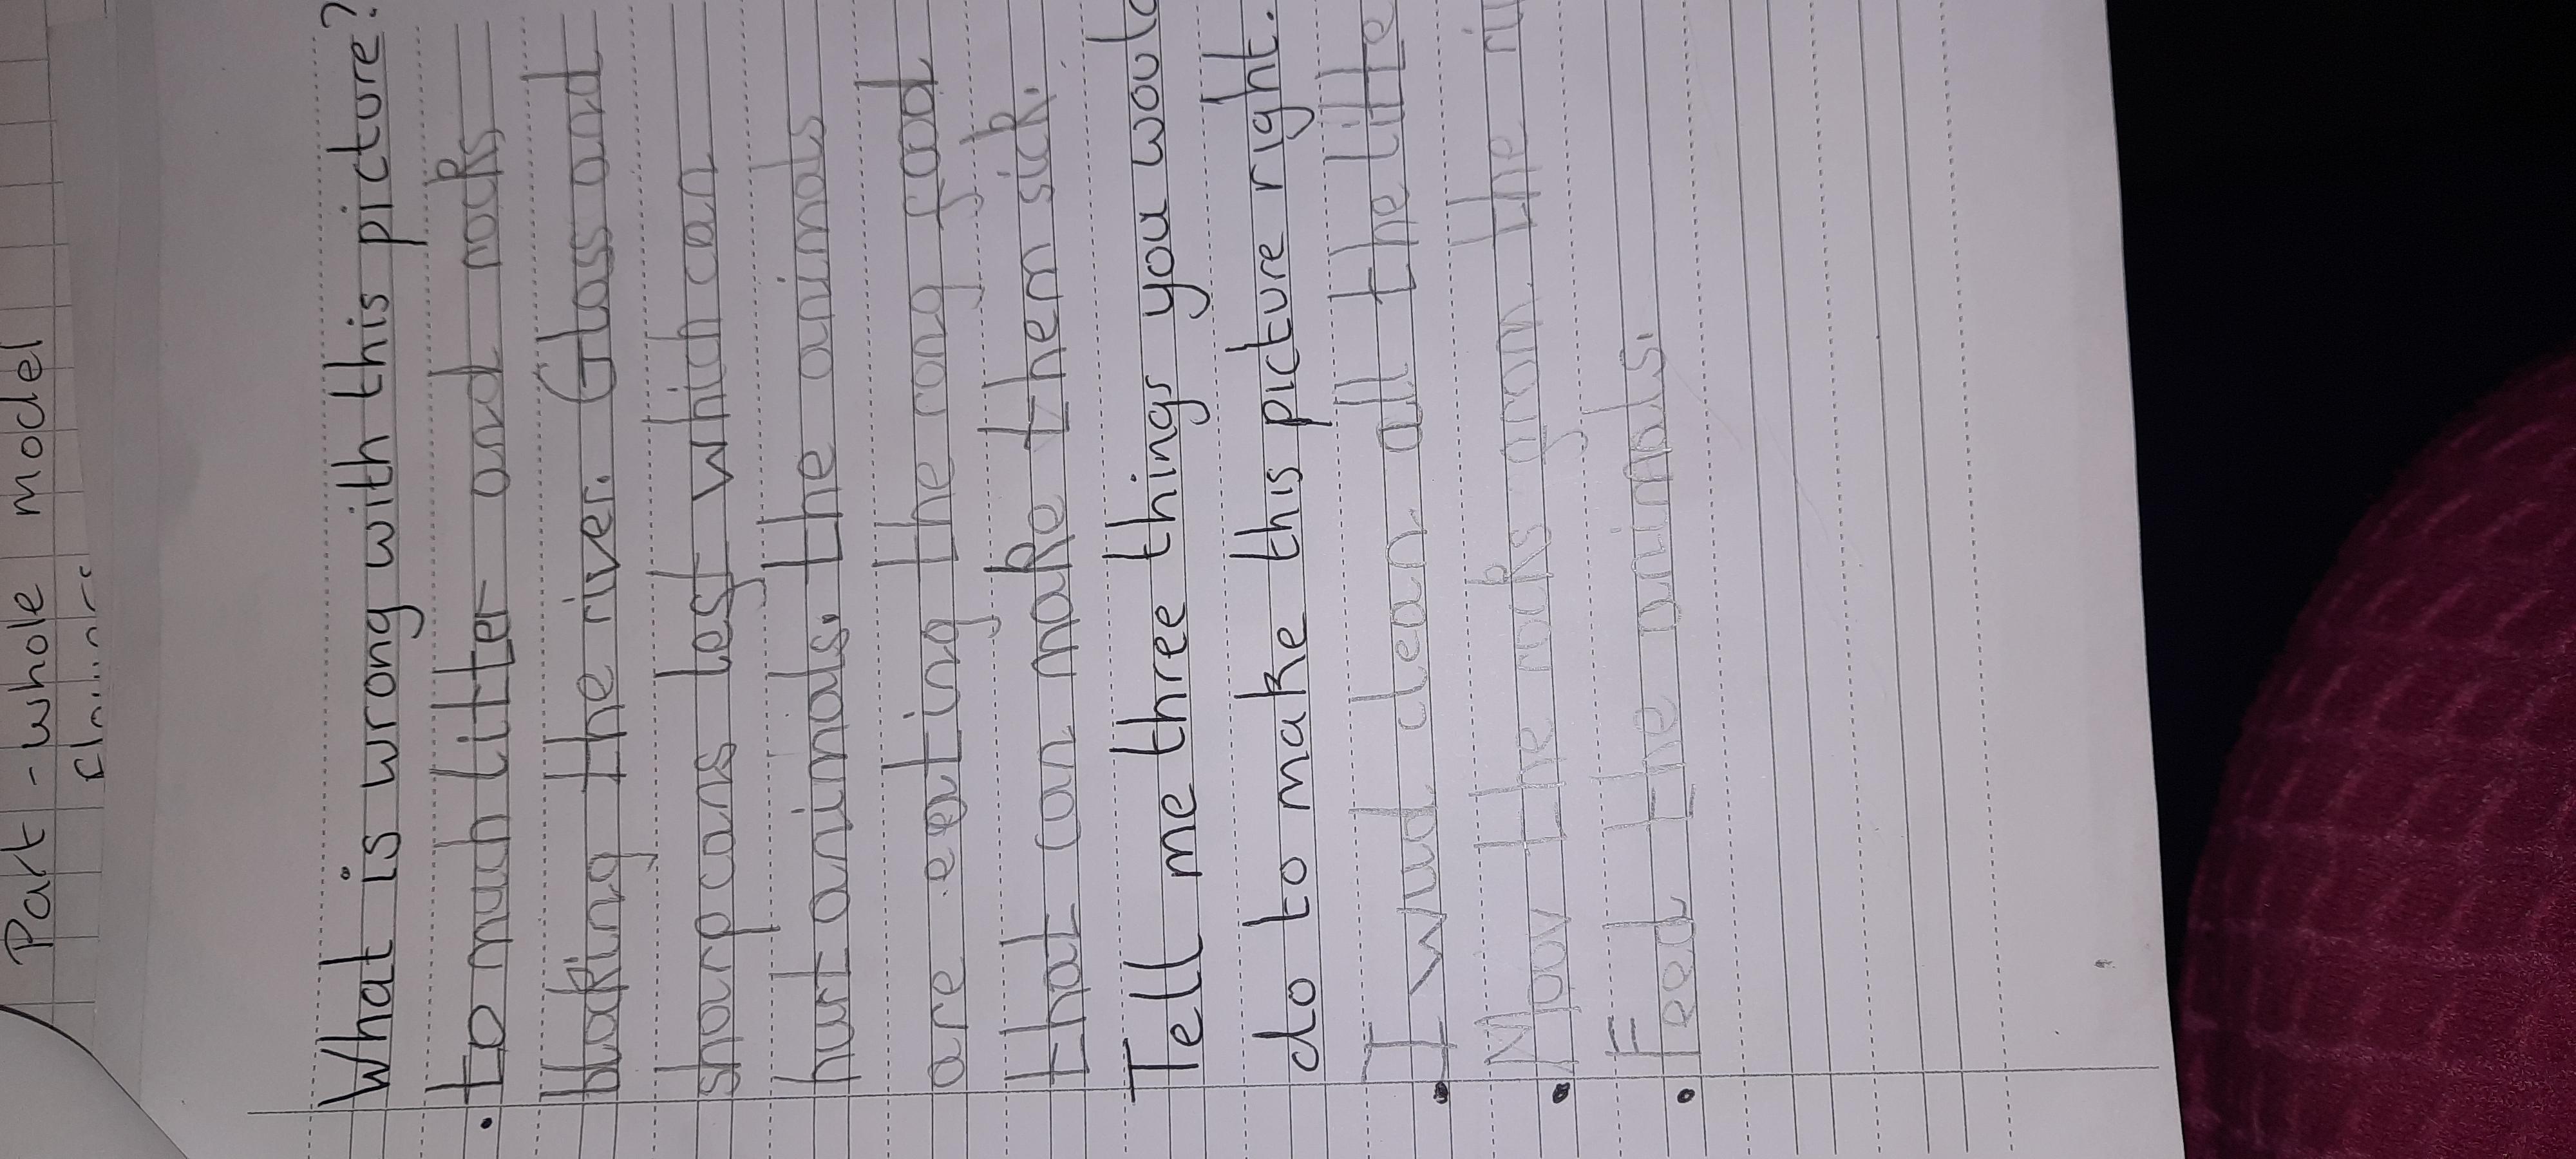 Part - whole model
What is wrong with this picture?
• to much litter and roks
bloking the river. Glass and
sharp cans lest which can
hurt animals. the animals
are eating the rong food
that can make them sick.
Tell me three things you would
do to make this picture right.
• I wud clean all the litte
• Moov the roks gron the ri
• Feed the animals.